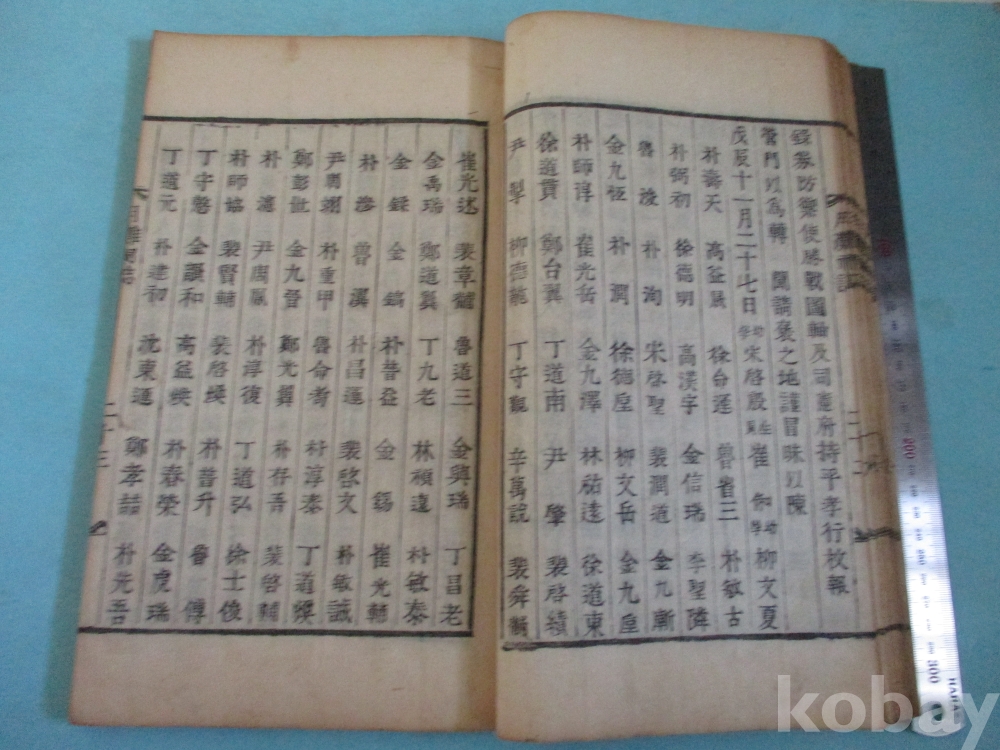 錄券防禦使勝戰圖軸及司憲府持平孝行枚報
營門以爲轉 聞請褒之地謹冒昧以陳
戊辰十一月二十七日 幼學 宋啓殷 生員 崔 幼學 柳文夏
朴壽天 高益晟 徐台運 魯省三 朴敏古
朴弼初 徐德明 高漢宇 金信瑞 李聖隣
魯浚 朴洵 宋啓聖 裴潤道 金九漸
金九恒 朴潤 徐德垕 柳文岳 金九垕
朴師淳 崔光岳 金九澤 林祜遠 徐道東
徐道貫 鄭台翼 丁道南 尹肇 裴啓績
尹 柳德龍 丁守觀 辛萬說 裴舜
崔光述 裴章 魯道三 金興瑞 丁昌老
金禹瑞 鄭道翼 丁九老 林禎遠 朴敏泰
金錄 金鎬 朴普益 金錫 崔光輔
朴滲 魯漢 朴昌運 裴啓文 朴敏誠
尹周翊 朴重甲 魯命耉 朴淳泰 丁道
鄭彭世 金九晉 鄭光翼 朴存吾 裴啓輔
朴 尹周鳳 朴淳復 丁道弘 徐士俊
朴師協 裴賢輔 裴啓 朴普升 魯傅
丁守 金謙和 高益 朴春榮 金虎瑞
丁道元 朴建初 沈東進 鄭孝喆 朴光吾
二十三
kobay